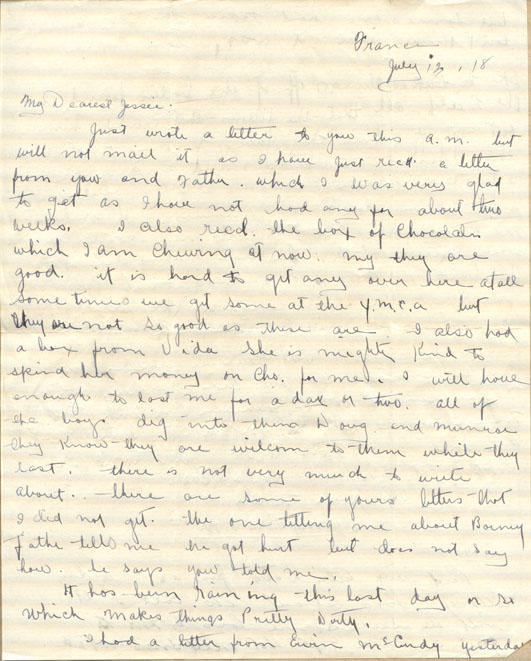 France
July 12, 18
My Dearest Jessie.
Just wrote a letter to you this a.m. but
will not mail it as I have just recd. a letter
from you and Father. which I was very glad
to get as I have not had any for about two
weeks. I also recd. the box of Chocolates
which I am Chewing at now. my they are
good. it is hard to get any over here at all
some times we get some at the Y.M.C.A but
they are not so good as these are. I also had
a box from Vida She is mighty Kind to
spend her money on Cho. for me. I will have
enough to last me for a day or two. all of
the boys dig into them Doug. and Munroe
they Know they are welcom to them while they
last. there is not very much to write
about.. there are some of yours letters that
I did not get. the one telling me about
Father tells me he got hurt but does not say
how. he says you told me.
It has been raining this last day or so
which makes things Pretty Dirty.
I had a letter from McCurdy yesterday